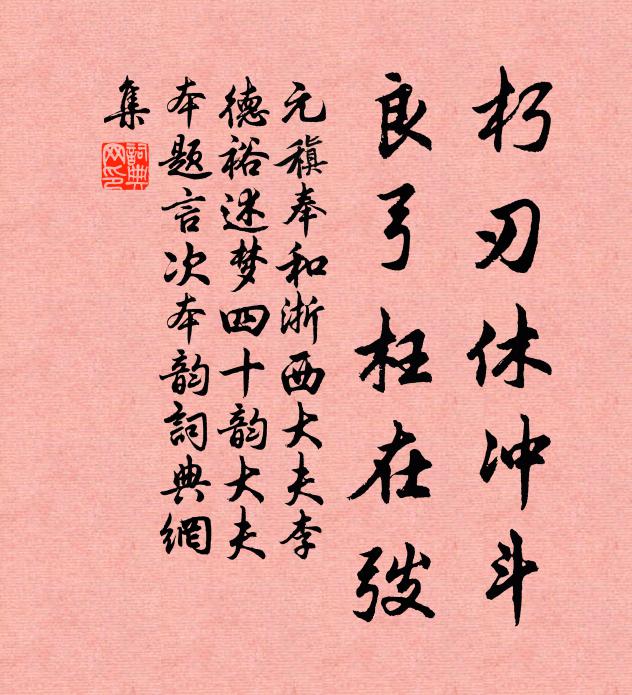 朽刃休冲斗
良弓枉在弢
元稹奉和浙西大夫李
德裕述梦四十韵大夫
本题言次本韵詞典網
集
詞典网印